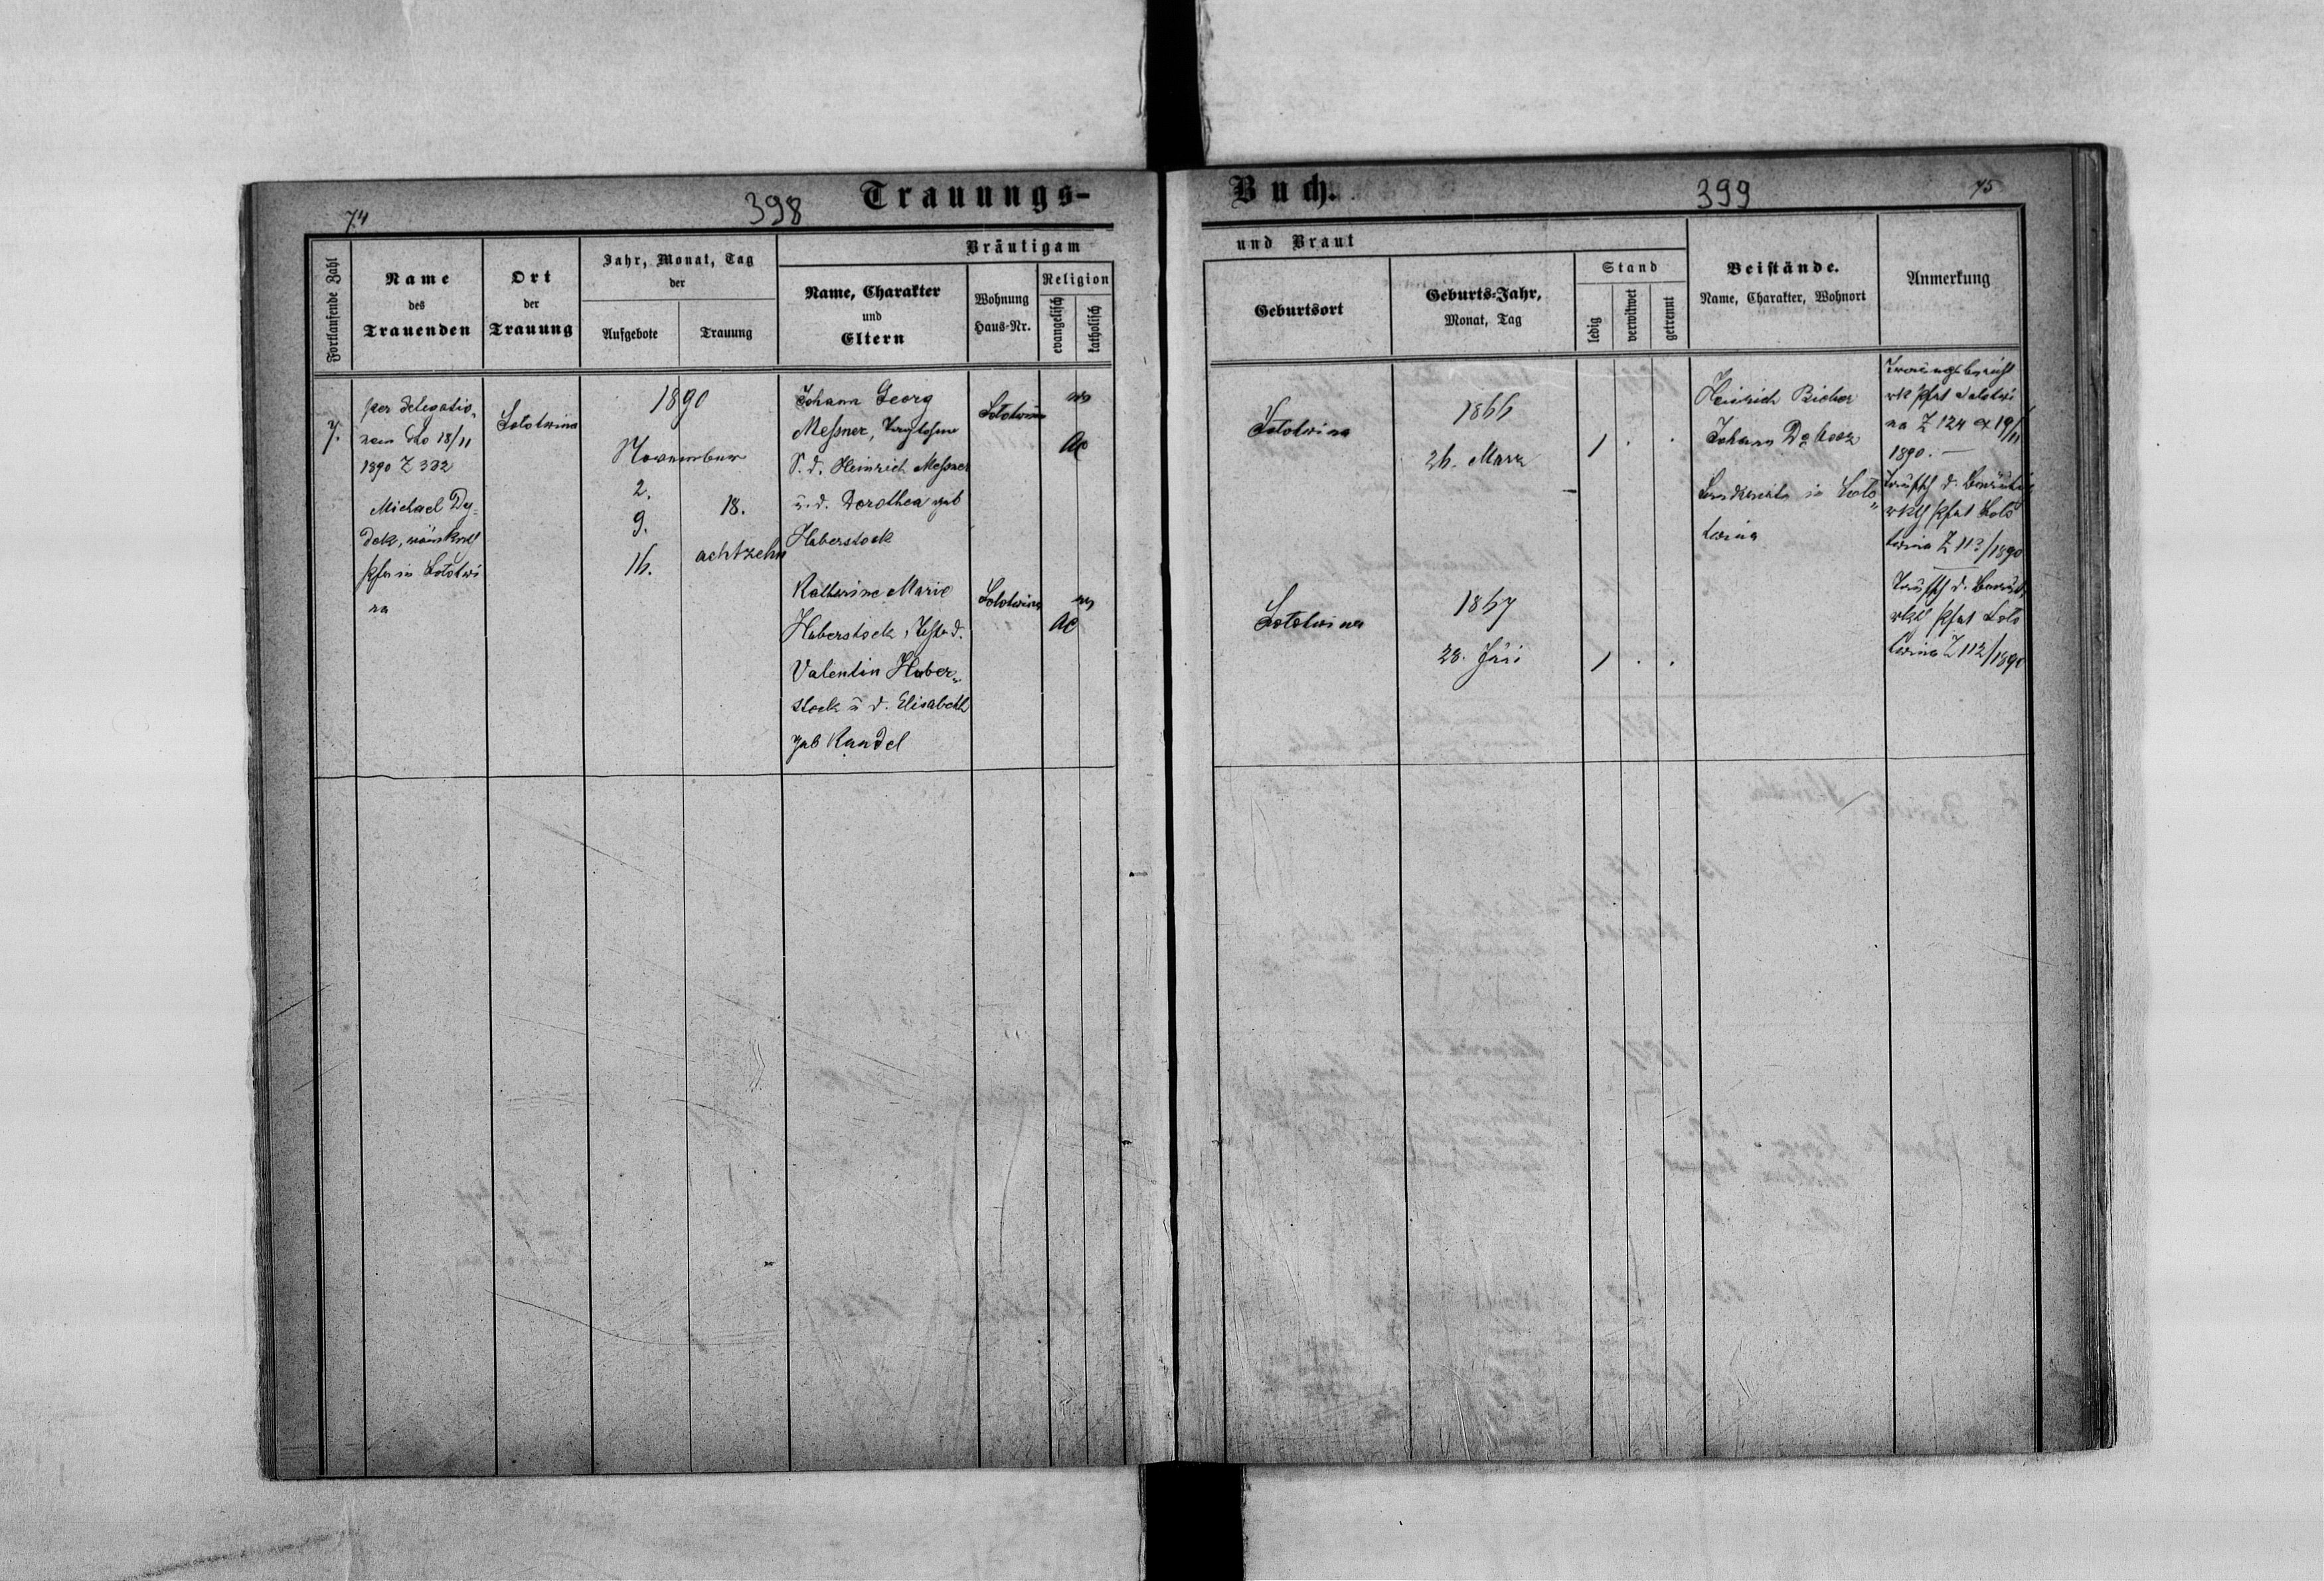 74
398
Trauungs-
Fortlaufende Zahl
Name
des
Trauenden
Ort
der
Trauung
Jahr, Monat, Tag
der
Aufgebote
Trauung
Bräutigam
Name, Charakter
und
Eltern
Wohnung
Haus-Nr.
Religion
evangelisch
katholisch
7.
per delegatio„
nem dto 18/11
1890 Z 332
Michael Dy„
dek,
Pfr in Sołotwi
na
Sołotwina
1890
November
2.
9.
16.
18.
achtzehn
Johann Georg
Meßner,
S. d. Heinrich Meßner
u. d. Dorothea geb
Haberstock
Sołotwina
AC
Katharine Marie
Haberstock,
Valentin Haber„
stock u d. Elisabeth
geb Kandel
Sołotwina
AC
Buch.
399
75
und Braut
Geburtsort
Geburts-Jahr,
Monat, Tag
Stand
ledig
verwitwet
getrennt
Beistände.
Name, Charakter, Wohnort
Anmerkung
Sołotwina
1866
26. März
1 . .
Heinrich
Johann
Landwirte in Soło„
twina
rk Pfat Sołotwi
na Z 124 19/11
1890. —
rkth Pfat Soło
twina Z 113/1890
Sołotwina
1867
28.
1 . .
rkth Pfat Soło
twina Z 112/1890